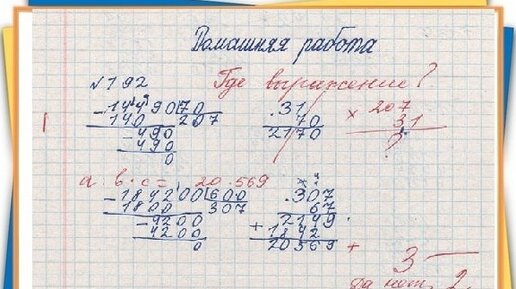 Домашняя работа
№192
Где выражение?
14490|70
140 207
490
490
0
.31
70
2170
× 207
31
a · b · c = 20 569
184200|600
1800 307
4200
4200
0
× .307
67
2149
+ 1842
20569
+
3 —
2